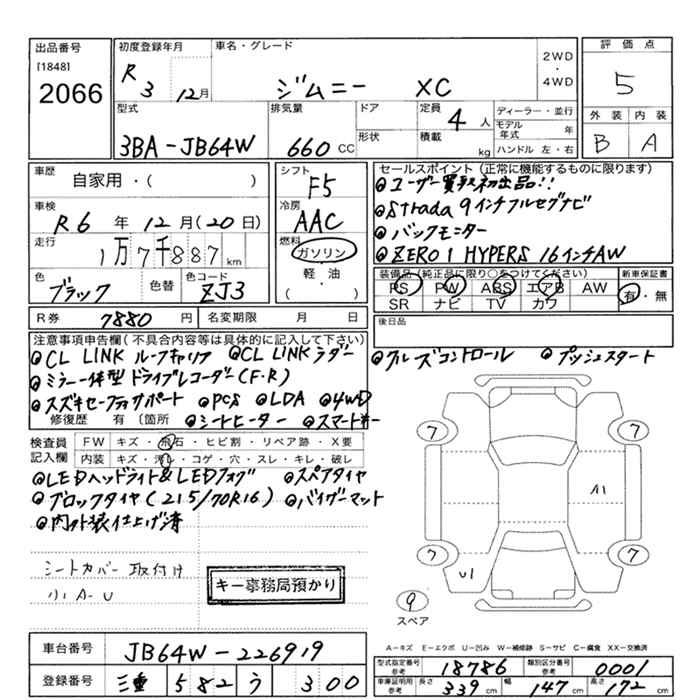 出品番号
[1848]
2066
初度登録年月
R 3 12月
車名・グレード
ジムニー XC
2WD
・
4WD
評価点
5
外装 内装
B A
型式
3BA-JB64W
排気量
660 CC
ドア
形状
定員 4 人
積載 kg
ディーラー・並行
モデル年式 年
ハンドル 左・右
車歴
自家用・( )
車検
R6 年 12月(20日)
走行
1万7千887 km
色
ブラック
色替
色コード
ZJ3
シフト
F5
冷房
AAC
燃料
ガソリン
・
軽・油
( )
セールスポイント(正常に機能するものに限ります)
●ユーザー買取初出品!!
●Strada 9インチフルセグナビ
●バックモニター
●ZERO1 HYPERS 16インチAW
装備品(純正品に限り○をつけてください)
PS PW ABS エアB AW
SR ナビ TV カワ
新車保証書
有・無
R券 7880 円
名変期限 月 日
後日品
注意事項申告欄(不具合内容等は具体的に記入して下さい)
●CL LINK ルーフキャリア ●CL LINKラダー
●ミラー一体型ドライブレコーダー(F・R)
●スズキセーフティサポート ●PCS ●LDA ●4WD
修復歴 有 〔箇所 ●シートヒーター ●スマートキー
●クルーズコントロール ●プッシュスタート
検査員記入欄
FW キズ・飛石・ヒビ割・リペア跡・X要
内装 キズ・汚れ・コゲ・穴・スレ・キレ・破レ
●LEDヘッドライト&LEDフォグ ●スペアタイヤ
●ブロックタイヤ(215/70R16) ●バイザーマット
●内外装仕上げ済
シートカバー取付け
小A-U
キー事務局預かり
7 7
A1
7 7
U1
9
スペア
A-キズ E-エクボ U-凹み W-補修跡 S-サビ C-腐食 XX-交換済
車台番号 JB64W-226919
登録番号 三重 582 う 300
型式指定番号 参考 18786 類別区分番号 参考 0001
車庫証明用 参考 長さ 339 cm 幅 147 cm 高さ 172 cm